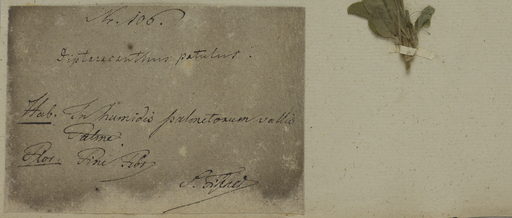 Nr. 106.
Dipteracanthus patulus.
Hab. In humidis palmetorum vallis
Palme.
Flor. Fine Febr